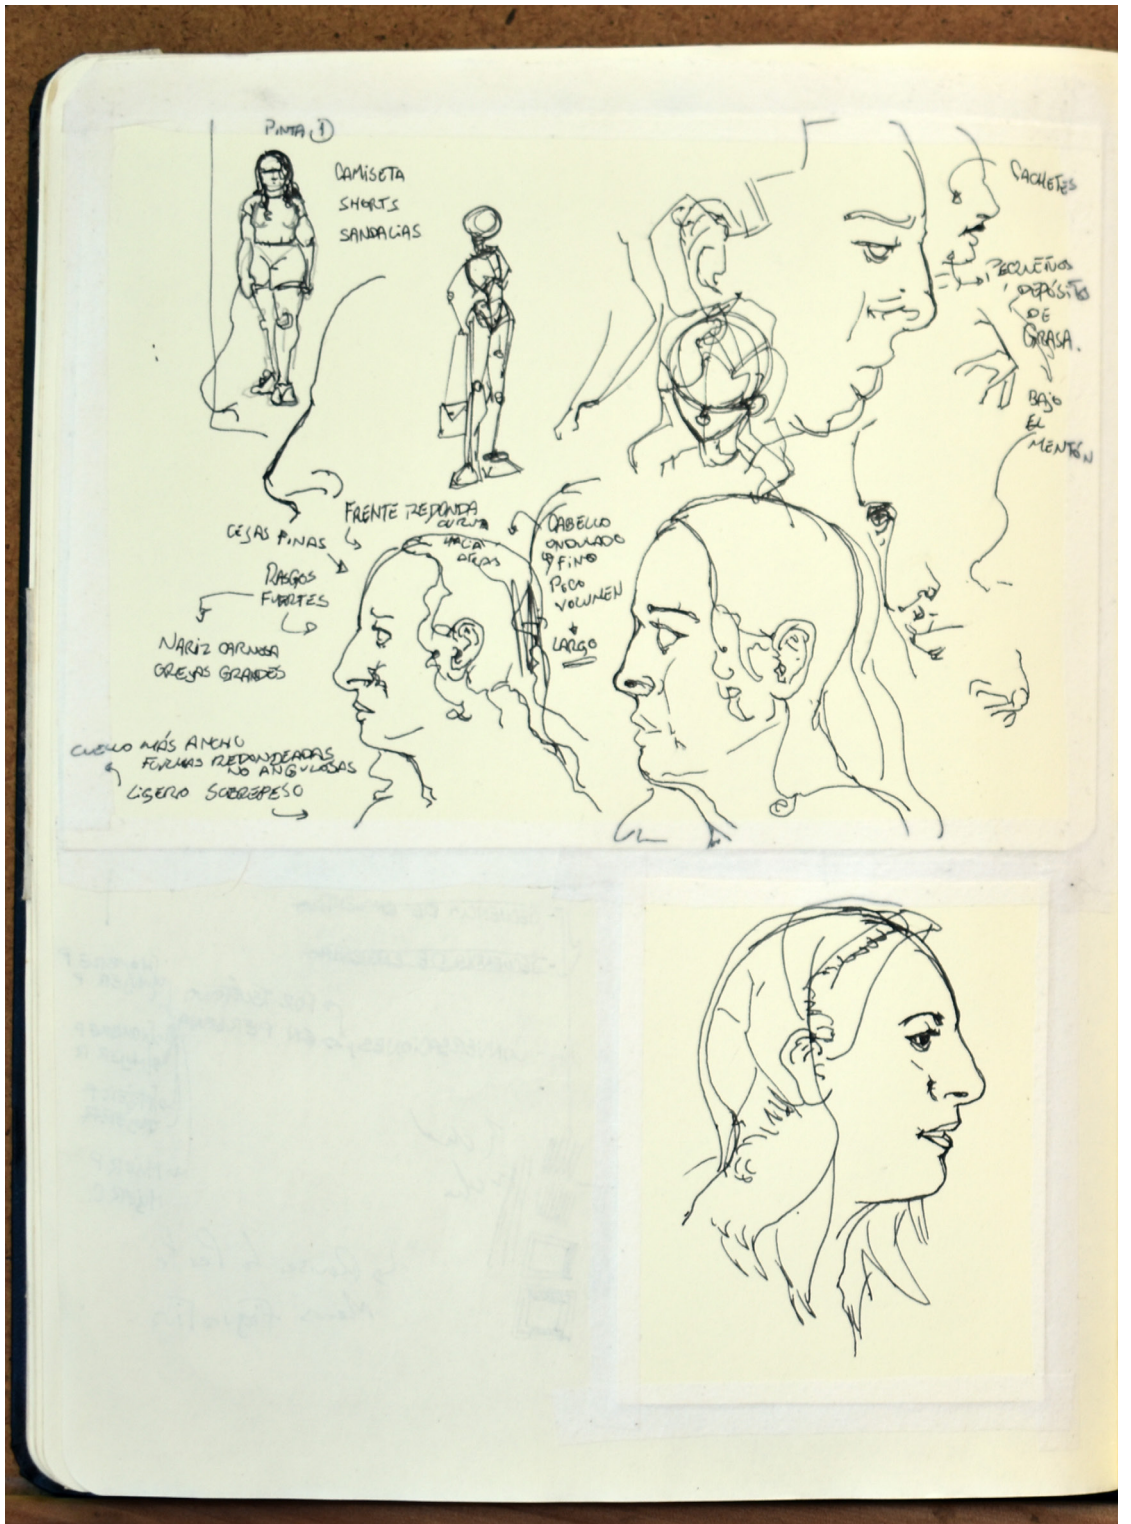 PINTA 1
CAMISETA
SHORTS
SANDALIAS
CACHETES
PEQUEÑOS
DEPÓSITOS
DE
GRASA.
BAJO
EL
MENTÓN
FRENTE REDONDA
CURVA
HACIA
ATRAS
CEJAS FINAS
RASGOS
FUERTES
NARIZ CARNOSA
OREJAS GRANDES
CABELLO
ONDULADO
Y FINO
POCO
VOLUMEN
LARGO
CUELLO MÁS ANCHO
FORMAS REDONDEADAS
NO ANGULOSAS
LIGERO SOBREPESO